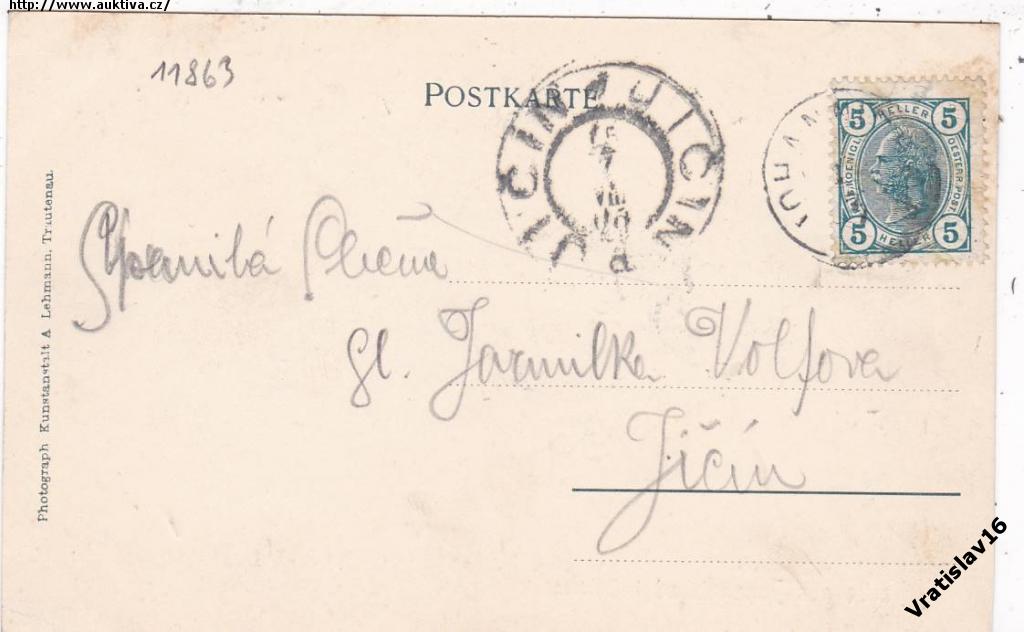 http://www.auktiva.cz/
11863
POSTKARTE
JIČÍN JIČIN
5 HELLER 5
KAIS.KOENIGL. OESTERR.POST
5 HELLER 5
JOHANN
Spanilá slečna
sl. Jarmilka Volfova
Jičín
Photograph Kunstanstalt A Lehmann, Trautenau.
Vratislav16